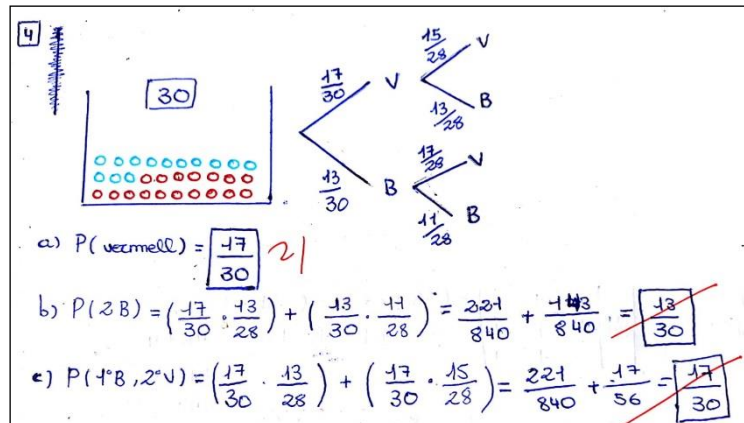 4
30
17/30 V 15/28 V
13/28 B
13/30 B 17/28 V
11/28 B
a) P(vermell) = 17/30 21
b) P(2B) = (17/30 · 13/28) + (13/30 · 11/28) = 221/840 + 143/840 = 13/30
c) P(1ºB, 2ºV) = (17/30 · 13/28) + (17/30 · 15/28) = 221/840 + 17/56 = 17/30